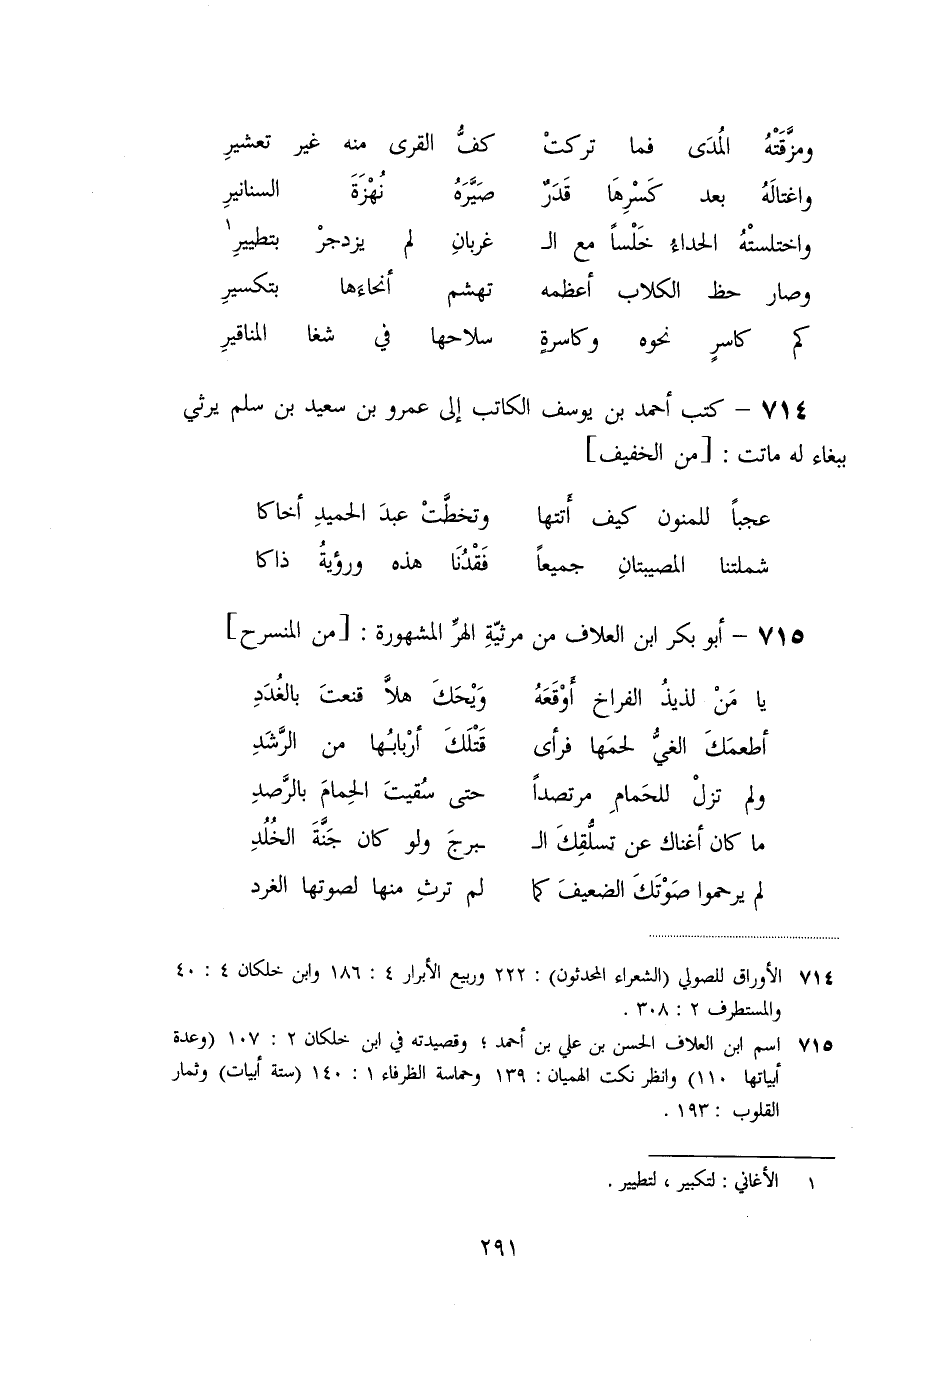 ومزَّقَتْهُ المُدَى فما تركتْ كفُّ القرى منه غير تعشيرِ
واغتالَهُ بعد كَسْرِهَا قَدَرٌ صَيَّرَهُ نُهْزَةَ السنانيرِ
واختلستْهُ الحداءُ خَلْساً مع الـ غربانِ لم يزدجرْ بتطييرِ١
وصار حظ الكلاب أعظمه تهشم أنحاءها بتكسيرِ
كم كاسرٍ نحوه وكاسرةٍ سلاحها في شغا المناقيرِ
٧١٤ – كتب أحمد بن يوسف الكاتب إلى عمرو بن سعيد بن سلم يرثي
ببغاء له ماتت : [من الخفيف]
عجباً للمنون كيف أَتتها وتخطَّتْ عبدَ الحميدِ أخاكا
شملتنا المصيبتانِ جميعاً فَقْدُنَا هذه ورؤيةُ ذاكا
٧١٥ – أبو بكر ابن العلاف من مرثيّةِ الهرِّ المشهورة : [من المنسرح]
يا مَنْ لذيذُ الفراخ أَوْقَعَهُ وَيْحَكَ هلاَّ قنعتَ بالغُدَدِ
أطعمَكَ الغيُّ لحمَها فرأى قَتْلَكَ أرْبابُها من الرَّشَدِ
ولم تزلْ للحَمامِ مرتصداً حتى سُقيتَ الحِمامَ بالرَّصدِ
ما كان أغناك عن تسلُّقِكَ الـ ـبرجَ ولو كان جَنَّةَ الخُلُدِ
لم يرحموا صَوْتَكَ الضعيفَ كما لم ترثِ منها لصوتها الغرد
٧١٤ الأوراق للصولي (الشعراء المحدثون) : ٢٢٢ وربيع الأبرار ٤ : ١٨٦ وابن خلكان ٤ : ٤٠
والمستطرف ٢ : ٣٠٨ .
٧١٥ اسم ابن العلاف الحسن بن علي بن أحمد ؛ وقصيدته في ابن خلكان ٢ : ١٠٧ (وعدة
أبياتها ١١٠) وانظر نكت الهميان : ١٣٩ وحماسة الظرفاء ١ : ١٤٠ (ستة أبيات) وثمار
القلوب : ١٩٣ .
١ الأغاني : لتكبير ، لتطيير .
٢٩١